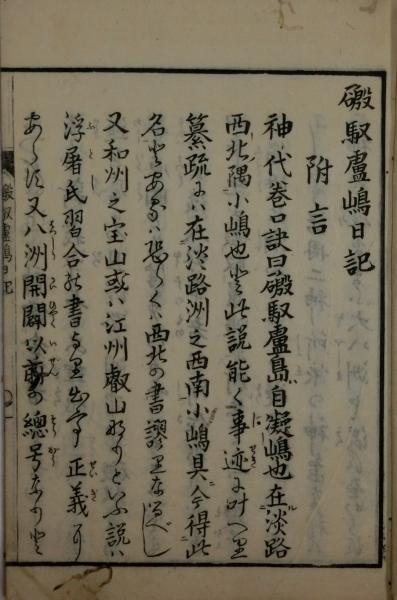 磤馭盧嶋日記
附言
神代巻口訣曰磤馭盧島自凝嶋也在淡路
西北隅小嶋也と此説能く事迹に叶へり
纂疏には在淡路洲之西南小嶋具今得此
名とあるは恐らくは西北の書謬りなるべし
又和州之宝山或は江州叡山なりといふ説は
浮屠氏習合の書より出て正義に
あらす又八洲開闢以前の總号なりと
磤馭盧嶋日記